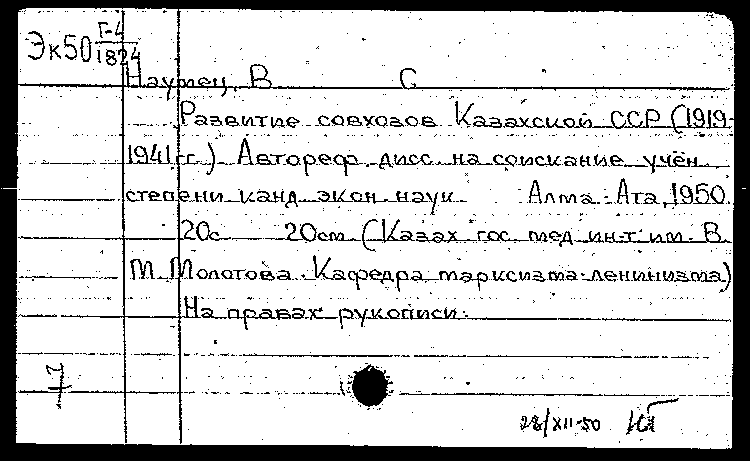 Эк50 Г-4
1824
Наумец, В С
Развитие совхозов Казахской ССР (1919-
1941 гг.) Автореф. дисс. на соискание учён.
степени канд. экон. наук. Алма-Ата, 1950.
20с. 20cm (Казах. гос. мед. ин-т им. В.
М. Молотова. Кафедра марксизма-ленинизма)
На правах рукописи.
7
28/XII-50